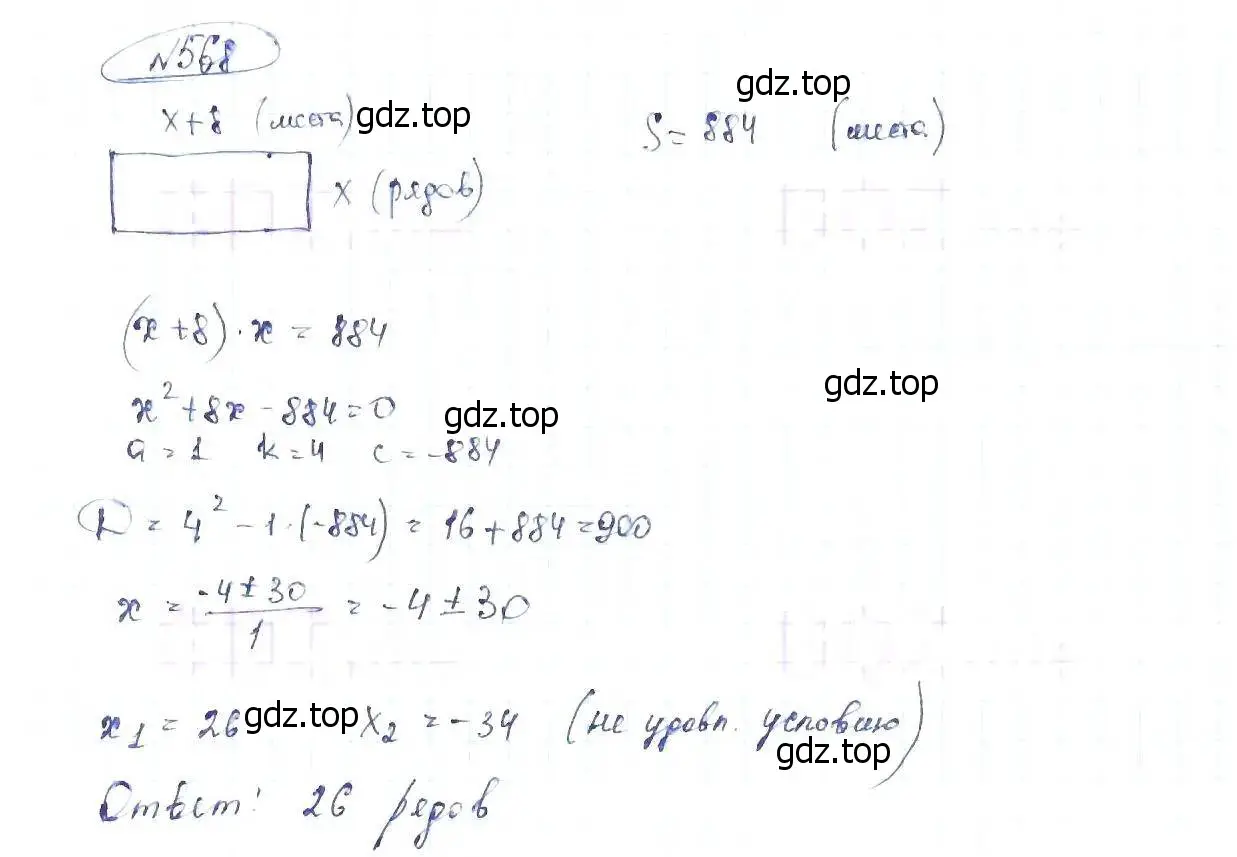 №568
gdz.top
x+8 (места) gdz.top
S = 884 (места)
x (рядов)
(x+8)·x = 884
gdz.top
x²+8x-884=0 gdz.top
a=1 k=4 c=-884
D = 4² - 1·(-884) = 16+884=900
x = (-4±30)/1 = -4±30
x₁ = 26 gdz.top x₂ = -34 (не удовл. условию)
gdz.top
Ответ: 26 рядов